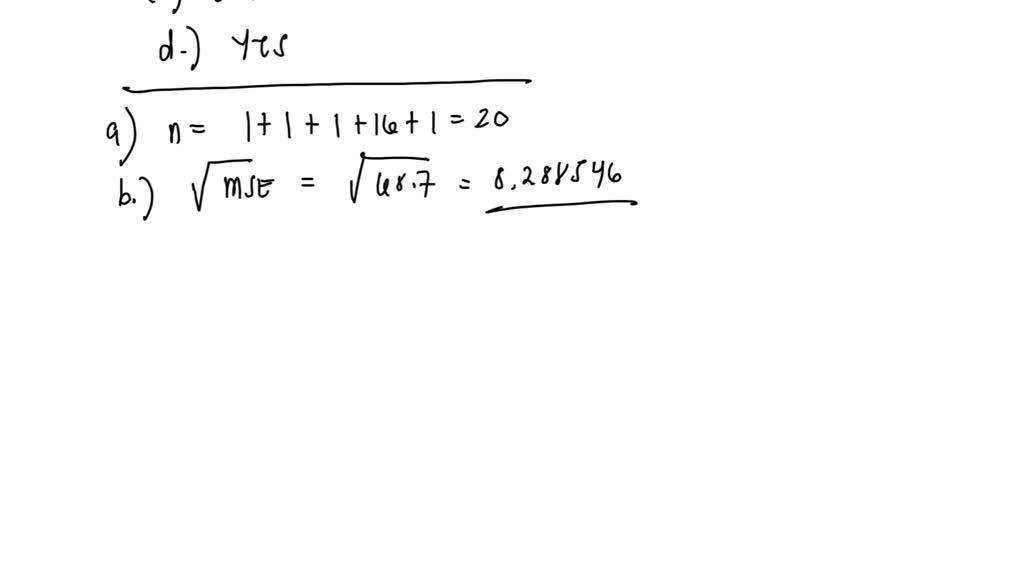 d.) Yes
a) n = 1 + 1 + 1 + 16 + 1 = 20
b.) √MSE = √68.7 = 8.288546